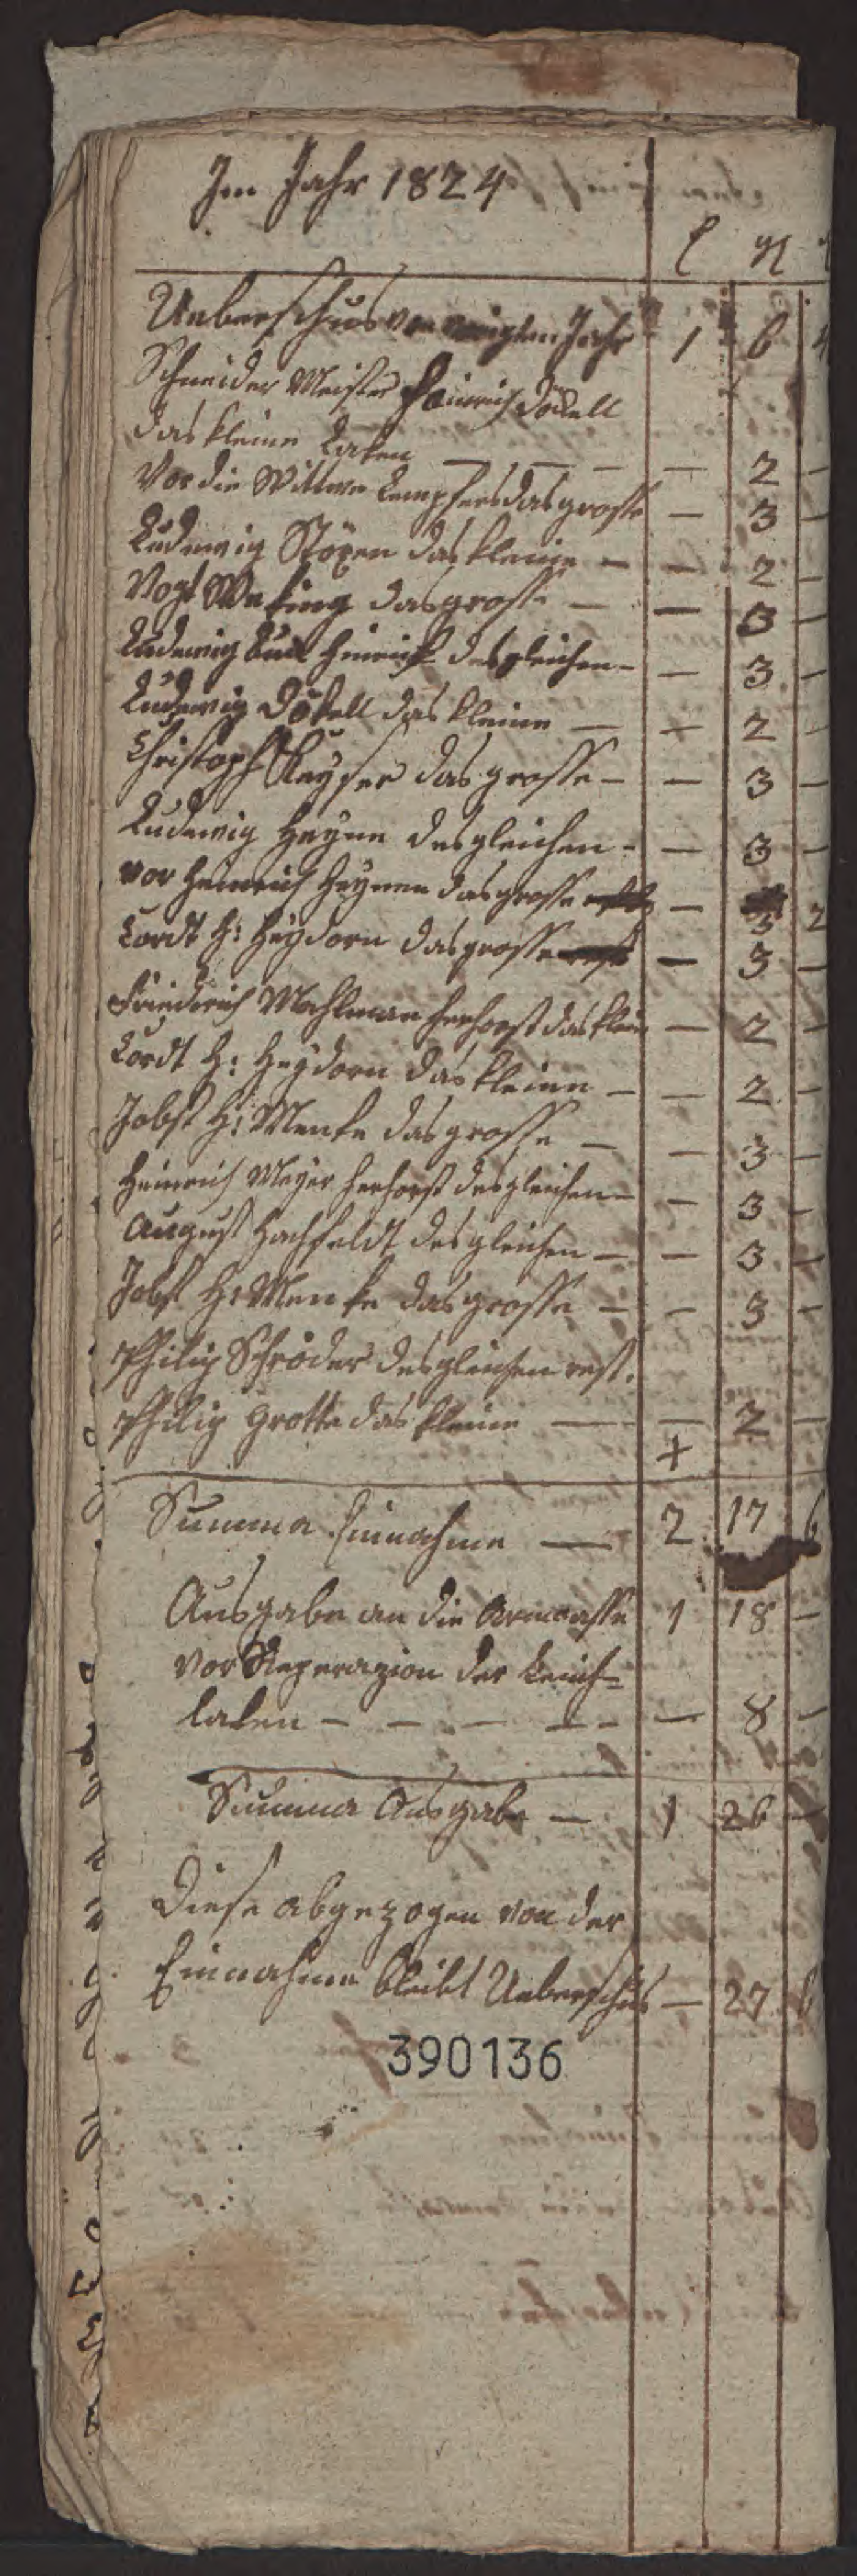 Im Jahr 1824
Ueberschus von vorigten Jahr 1 6 4
Schneider Meister Heinrich Dökell
das kleine Laken — — — — 2 —
Vor die Wittwe Kempfers das grosse — 3 —
Ludewig Stöxen das kleine — — 2 —
Vogt Weking das grosse — — 3 —
Ludewig Heinrich desgleichen — — 3 —
Ludewig Dökell das kleine — — 2 —
Christoph Keyser das grosse — — 3 —
Ludewig Heyne desgleichen — — 3 —
vor Heinrich Heynen das grosse — 3 2
Cordt H: Heydorn das grosse — 3 —
Friedrich Mahlman herhorst das klein — 2 —
Cordt H: Heydorn das kleine — — 2 —
Jobst H: Menke das grosse — — 3 —
Heinrich Meyer herhorst desgleichen — — 3 —
August Hachfeldt desgleichen — — 3 —
Jobst H: Menke das grosse — — 3 —
Philip Schröder desgleichen rest.
Philip Grotte das kleine — — 2 —
+
Summa Einnahme — 2 17 6
Ausgabe an die Armcasse 1 18 —
vor Reperazion der Leich-
laken — — — — — — 8 —
Summa Ausgabe — 1 26 —
Diese abgezogen von der
Einnahme bleibt Ueberschus — 27 6
390136